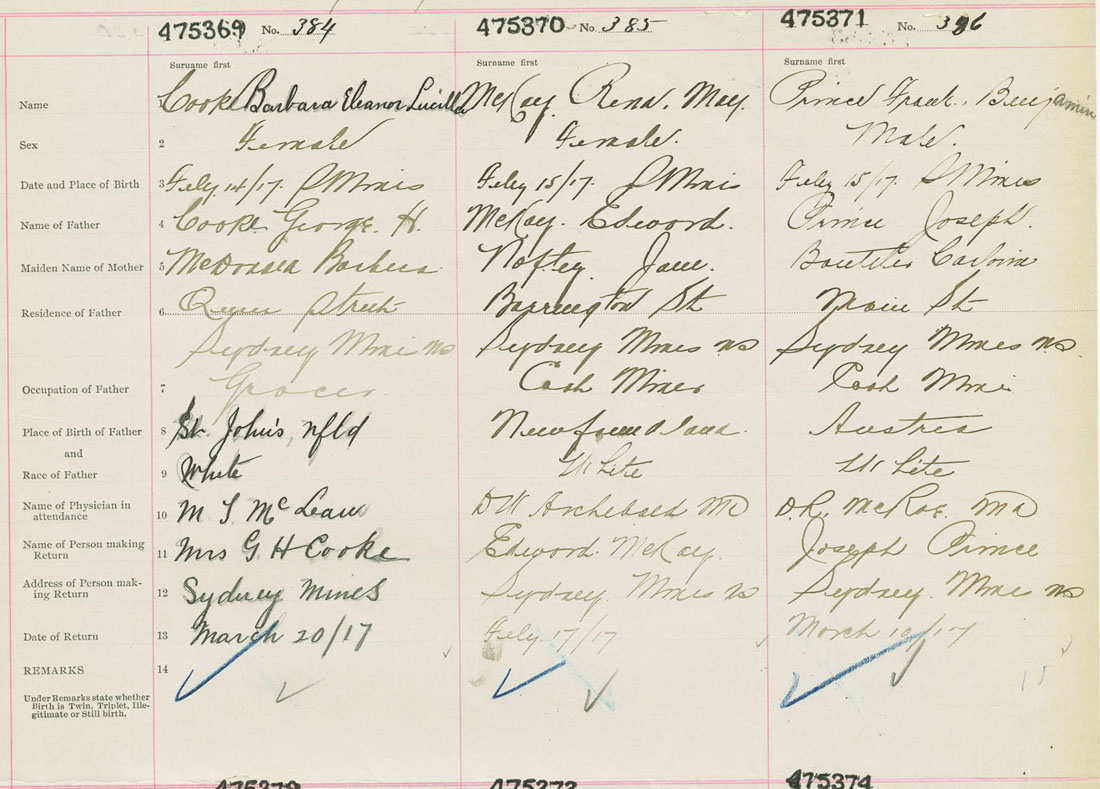 475369 No. 384 475370 No. 385 475371 No. 386
Surname first Surname first Surname first
Name Cooke Barbara Eleanor Lucilla McKay Rena. May. Prince Frank. Benjamin
Sex 2 Female Female. Male.
Date and Place of Birth 3 Feby 14/17. S Mines Feby 15/17. S Mines Feby 15/17. S Mines
Name of Father 4 Cooke George. H. McKay. Edward. Prince Joseph.
Maiden Name of Mother 5 Barbara Jane.
Residence of Father 6 Queen Street Barrington St Main St
Sydney Mines NS Sydney Mines NS Sydney Mines N.S.
Occupation of Father 7 Grocer. Coal Miner Coal Miner
Place of Birth of Father 8 St. John's, nfld Newfoundland. Austria
and
Race of Father 9 White White White
Name of Physician in
attendance 10 M. T McLean DW Archibald MD D.R. McRae. MD
Name of Person making
Return 11 Mrs G H Cooke Edward McKay. Joseph Prince
Address of Person mak-
ing Return 12 Sydney Mines Sydney. Mines NS Sydney. Mines NS
Date of Return 13 March 20/17 Feby 17/17 March 10/17
REMARKS 14
Under Remarks state whether
Birth is Twin, Triplet, Ille-
gitimate or Still birth.
15
475373 475374